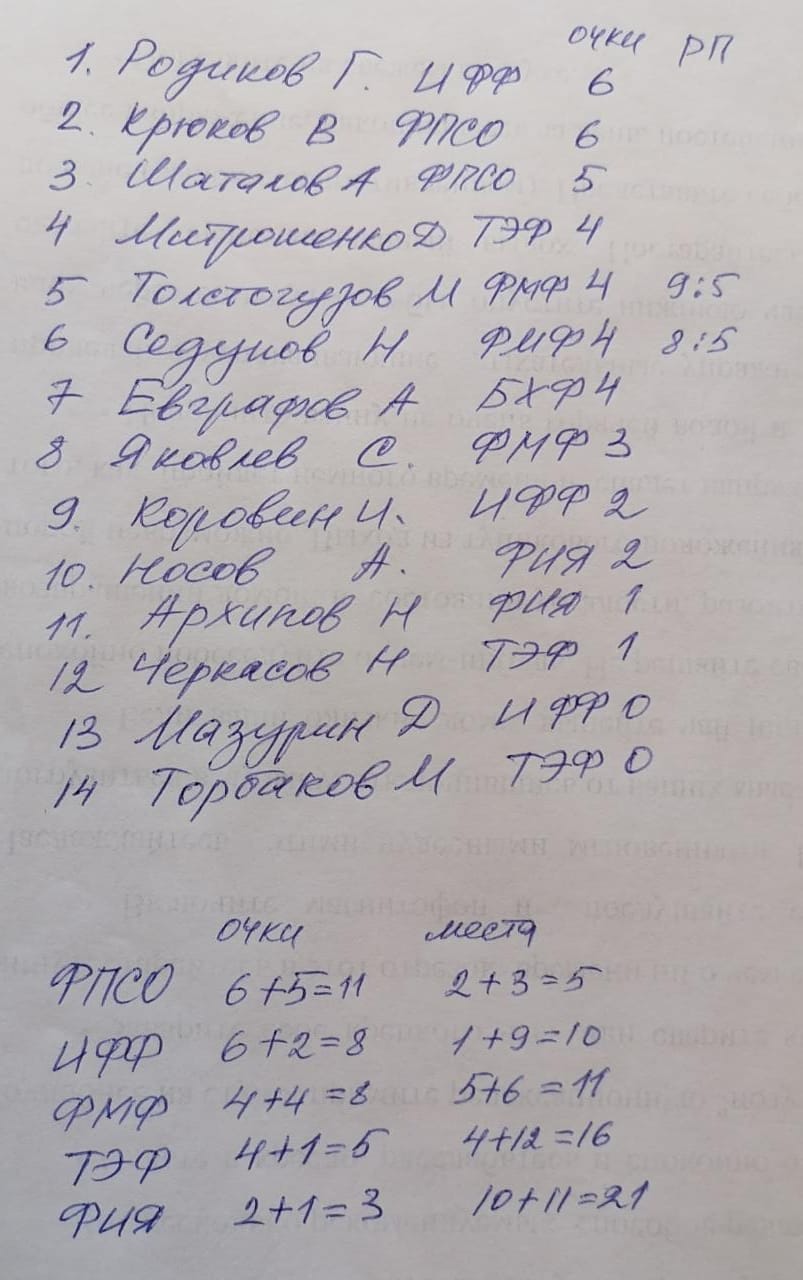 очки РП
1. Родиков Г. ИФФ 6
2. Крюков В ФПСО 6
3. Шаталов А ФПСО 5
4 Митрошенко Д ТЭФ 4
5 Толстогузов М ФМФ 4 9:5
6 Седунов Н ФМФ 4 8:5
7 Евграфов А БХФ 4
8 Яковлев С. ФМФ 3
9. Коровин И. ИФФ 2
10. Носов А. ФИЯ 2
11. Архипов Н ФИЯ 1
12 Черкасов Н ТЭФ 1
13 Мазурин Д ИФФ 0
14 Торбаков М ТЭФ 0
очки места
ФПСО 6+5=11 2+3=5
ИФФ 6+2=8 1+9=10
ФМФ 4+4=8 5+6=11
ТЭФ 4+1=5 4+12=16
ФИЯ 2+1=3 10+11=21